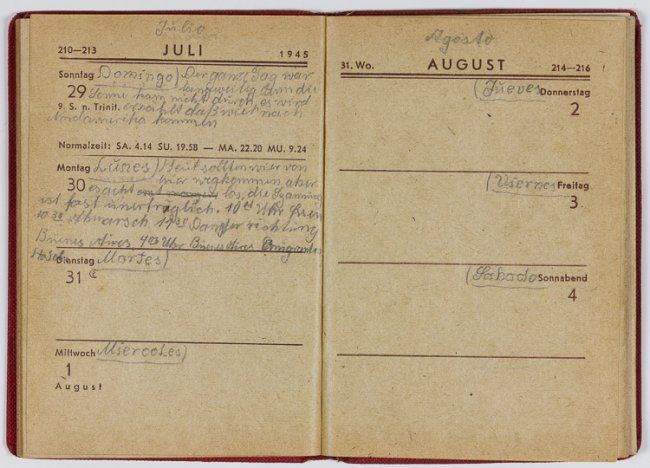 Julio
210—213 JULI 1945
Sonntag Domingo) Der ganze Tag war
29 langweilig denn die
Sonne kam nicht durch, es wird
9. S. n. Trinit. erzählt daß wir nach
Nordamerika kommen
Normalzeit: SA. 4.14 SU. 19.58 — MA. 22.20 MU. 9.24
Montag Lunes) Heut sollten wir von
30 hier wegkommen aber
los, die Spannung
ist fast unerträglich. 10 Uhr Essen
10 30 Abmarsch. 11 30 Dampfer richtung
Buenes Aires. 4 Uhr Buenes Aires Emigranten
Hotel
Dienstag Martes)
31
Mittwoch Miercoles)
1
August
Agosto
31. Wo. AUGUST 214—216
(Jueves Donnerstag
2
(Viernes Freitag
3
(Sabado Sonnabend
4